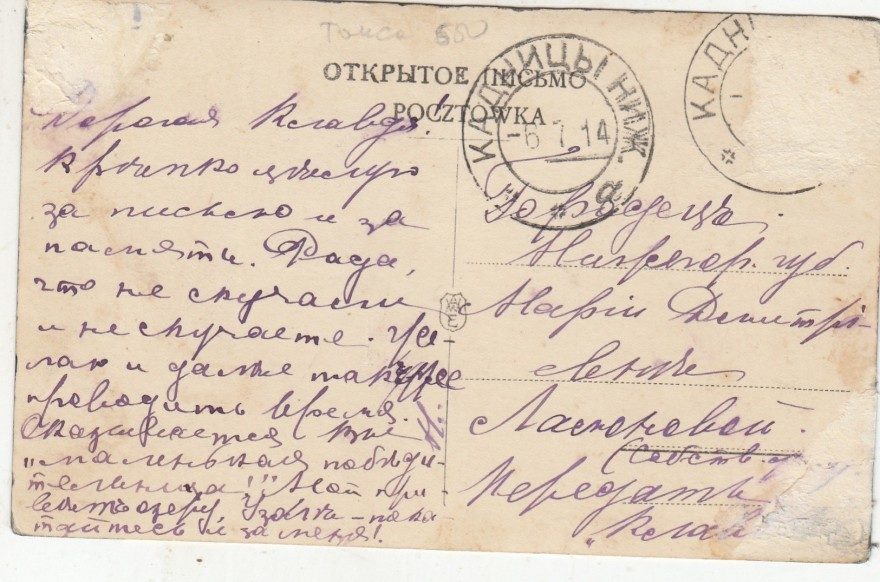 ОТКРЫТОЕ ПИСЬМО
POCZTOWKA
КАДНИЦЫ НИЖ.
-6 7 14
а
КАДН
Дорогая Клавдя!
Крѣпко цѣлую
за письмо и за
память. Рада,
что не скучали
и не скучаете. Же-
лаю и далѣе также
проводить время.
Сказывается вы
„маленькая побѣди-
тельница!!" Мой при-
вѣтъ озеру
таитесь и за меня!
Городецъ.
Нижегор. губ.
Маріи Дмитрі-
евнѣ
Ласточковой.
(Собств.
Передать
„Клав